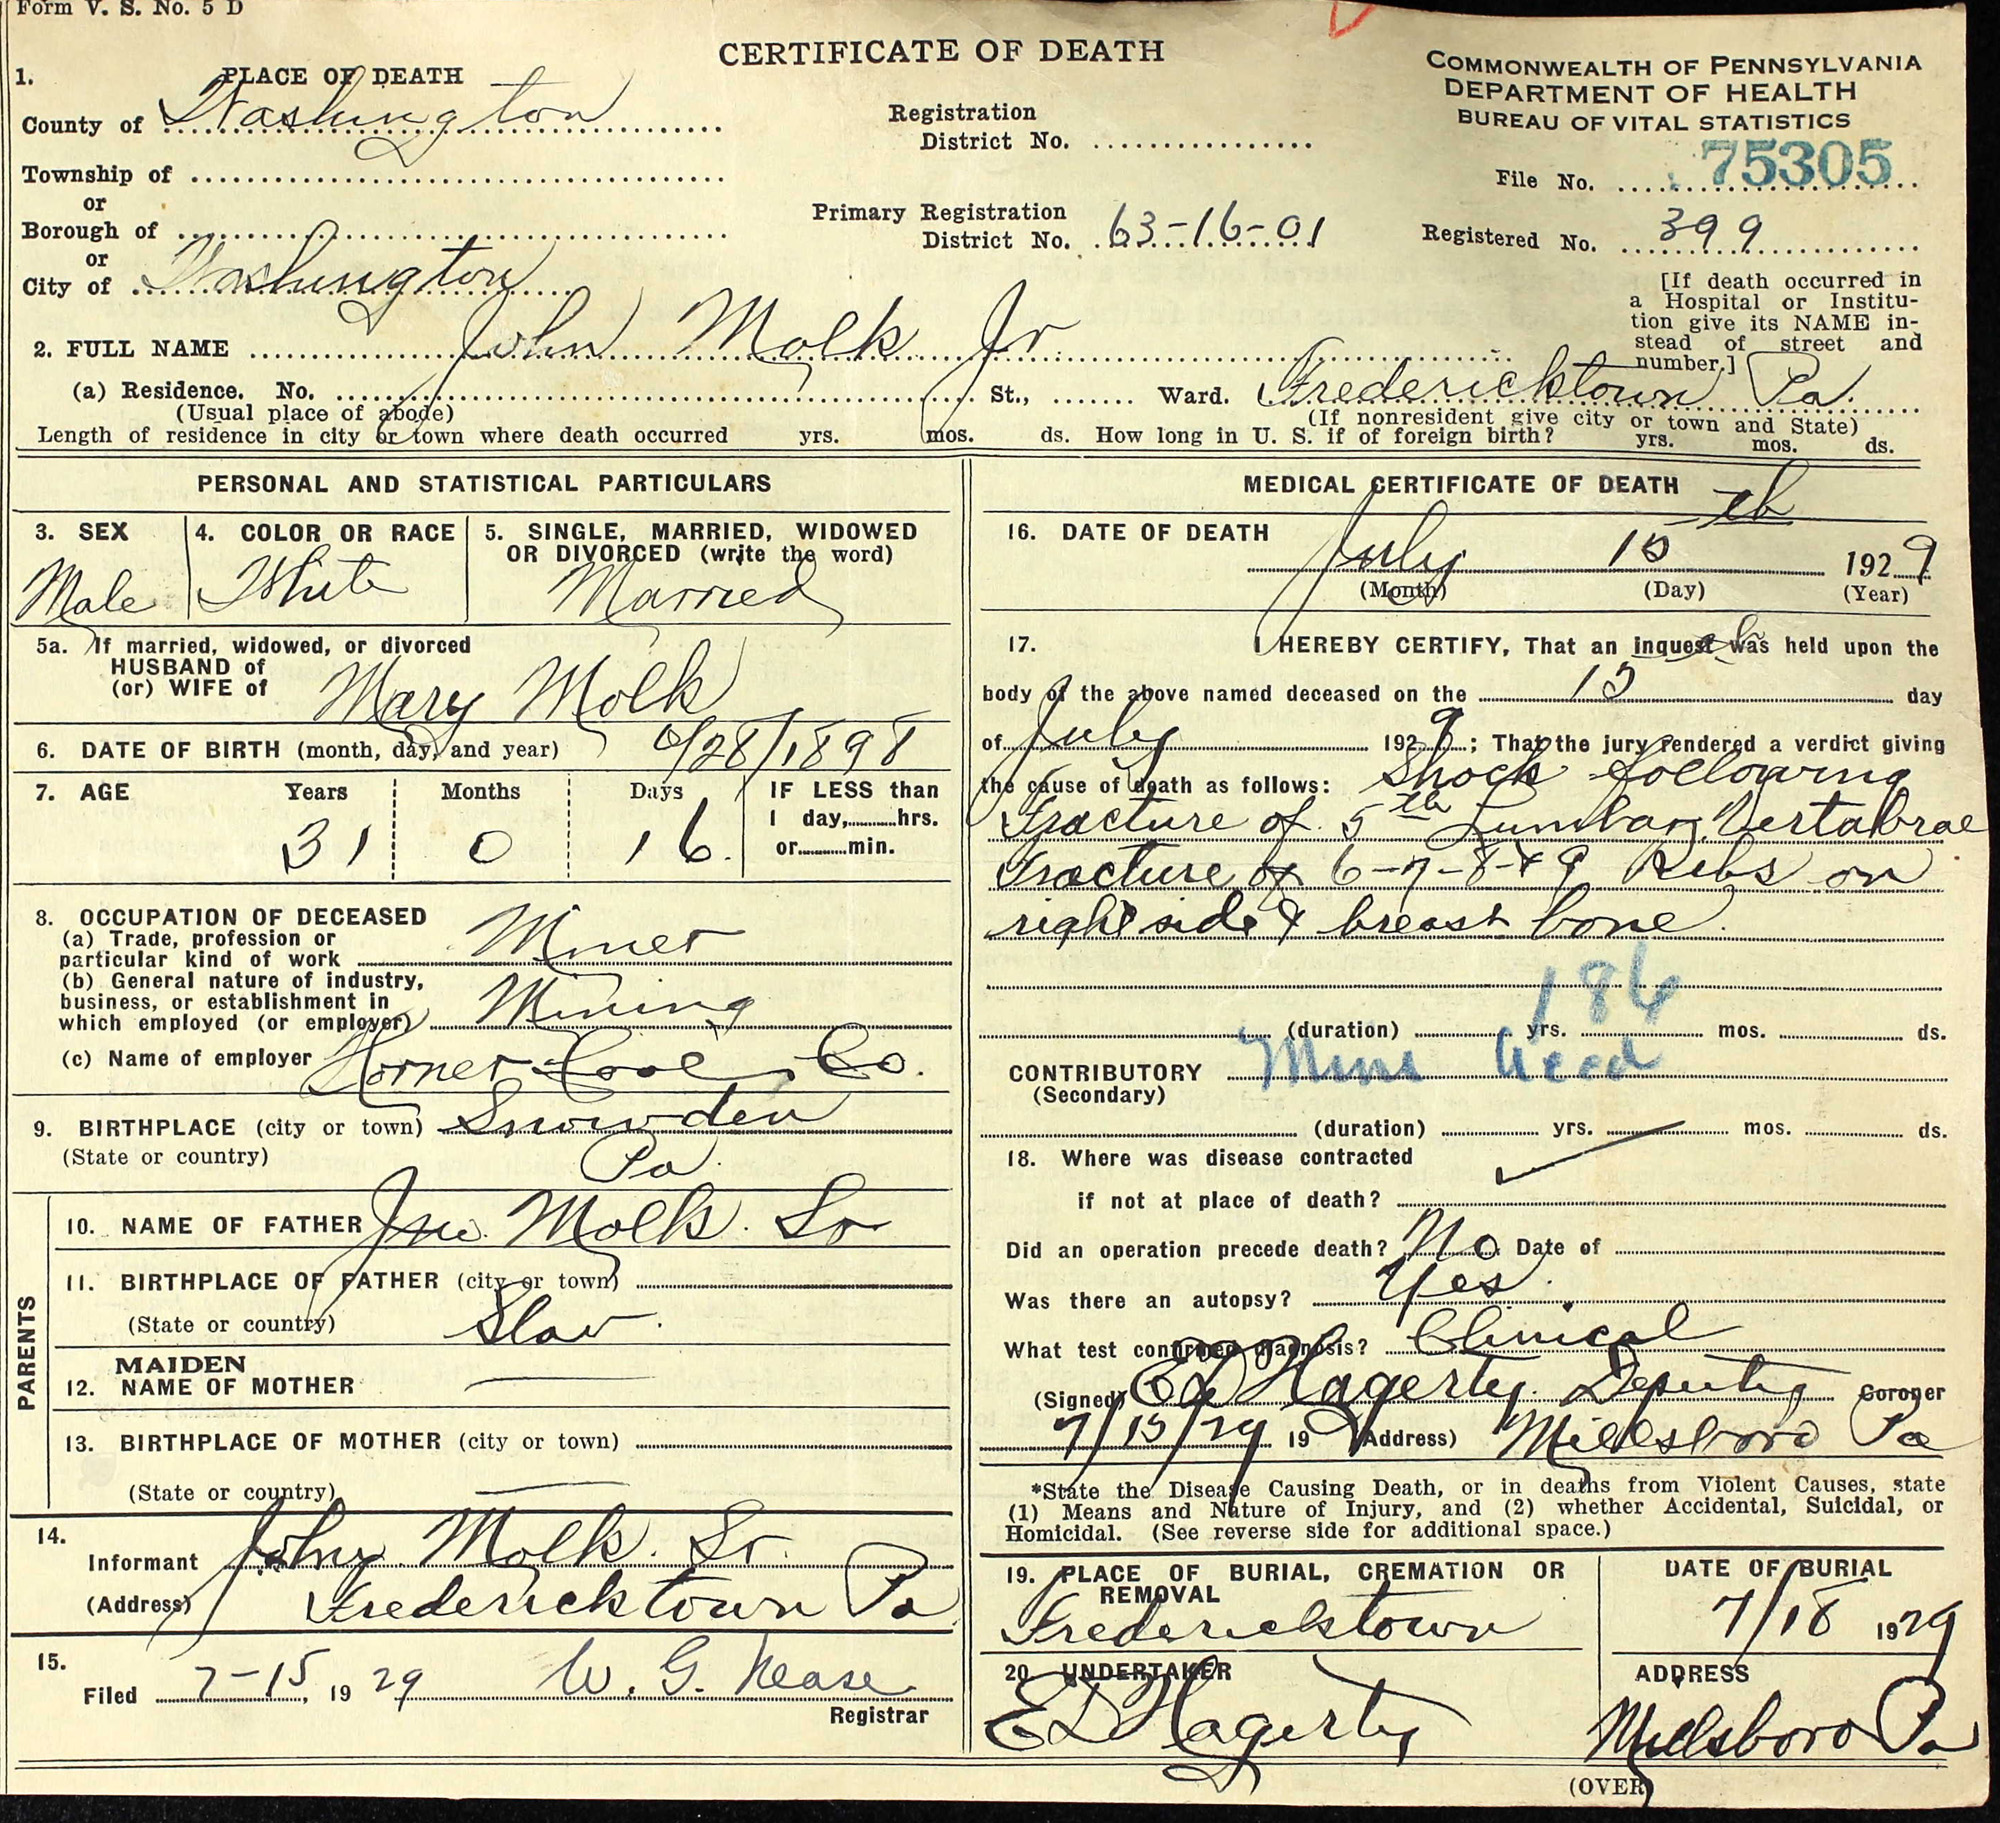 Form V. S. No. 5 D
CERTIFICATE OF DEATH
COMMONWEALTH OF PENNSYLVANIA
DEPARTMENT OF HEALTH
BUREAU OF VITAL STATISTICS
1. PLACE OF DEATH
County of Washington
Township of
or
Borough of
or
City of Washington
Registration
District No.
Primary Registration
District No. 63-16-01
File No. 75305
Registered No. 399
[If death occurred in
a Hospital or Institu-
tion give its NAME in-
stead of street and
number.]
2. FULL NAME John Molk Jr
(a) Residence. No. St., Ward. Fredericktown Pa.
(Usual place of abode) (If nonresident give city or town and State)
Length of residence in city or town where death occurred yrs. mos. ds. How long in U. S. if of foreign birth? yrs. mos. ds.
PERSONAL AND STATISTICAL PARTICULARS
3. SEX
Male
4. COLOR OR RACE
White
5. SINGLE, MARRIED, WIDOWED
OR DIVORCED (write the word)
Married
5a. If married, widowed, or divorced
HUSBAND of
(or) WIFE of Mary Molk
6. DATE OF BIRTH (month, day, and year) 6/28/1898
7. AGE Years Months Days IF LESS than
1 day,......hrs.
or......min.
31 0 16.
8. OCCUPATION OF DECEASED
(a) Trade, profession or
particular kind of work Miner
(b) General nature of industry,
business, or establishment in
which employed (or employer) Mining
(c) Name of employer Horner Coal Co.
9. BIRTHPLACE (city or town) Snowden
(State or country) Pa.
PARENTS
10. NAME OF FATHER Jno. Molk. Sr
11. BIRTHPLACE OF FATHER (city or town)
(State or country) Slav.
12. MAIDEN
NAME OF MOTHER
13. BIRTHPLACE OF MOTHER (city or town)
(State or country)
14.
Informant John Molk. Sr.
(Address) Fredericktown Pa
15.
Filed 7-15, 1929 W. G. Nease
Registrar
MEDICAL CERTIFICATE OF DEATH
16. DATE OF DEATH July 15 th 1929
(Month) (Day) (Year)
17. I HEREBY CERTIFY, That an inquest was held upon the
body of the above named deceased on the 15 th day
of July 1929; That the jury rendered a verdict giving
the cause of death as follows: Shock following
Fracture of 5th Lumbar Vertabrae
Fracture of 6-7-8-&9 Ribs on
right side & breast bone.
186
(duration) yrs. mos. ds.
CONTRIBUTORY Mine Accd
(Secondary)
(duration) yrs. mos. ds.
18. Where was disease contracted
if not at place of death?
Did an operation precede death? No. Date of
Was there an autopsy? Yes.
What test confirmed diagnosis? Clinical
(Signed) ED Hagerty. Deputy Coroner
7/15/29 19 (Address) Millsboro Pa
*State the Disease Causing Death, or in deaths from Violent Causes, state
(1) Means and Nature of Injury, and (2) whether Accidental, Suicidal, or
Homicidal. (See reverse side for additional space.)
19. PLACE OF BURIAL, CREMATION OR
REMOVAL
Fredericktown
DATE OF BURIAL
7/18 1929
20. UNDERTAKER
ED Hagerty
ADDRESS
Millsboro Pa
(OVER)